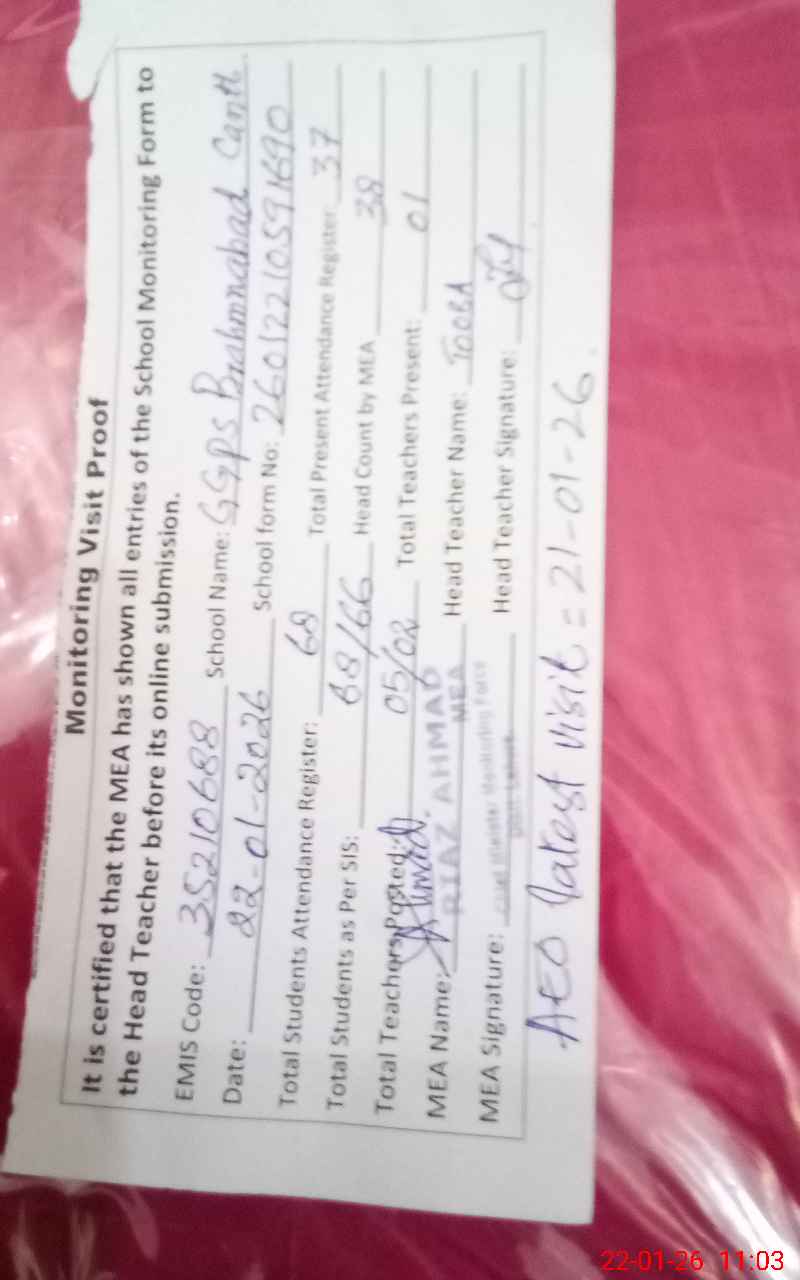 Monitoring Visit Proof
It is certified that the MEA has shown all entries of the School Monitoring Form to
the Head Teacher before its online submission.
EMIS Code: 35210688 School Name: GGPS Brahmnabad Cantt.
Date: 22-01-2026 School form No: 26012210591690
Total Students Attendance Register: 68 Total Present Attendance Register: 37
Total Students as Per SIS: 68/66 Head Count by MEA 38
Total Teachers Posted: 05/02 Total Teachers Present: 01
MEA Name: RIAZ AHMAD Head Teacher Name: TOOBA
MEA
MEA Signature: Head Teacher Signature:
Monitoring Force
AEO latest visit = 21-01-26.
22-01-26 11:03